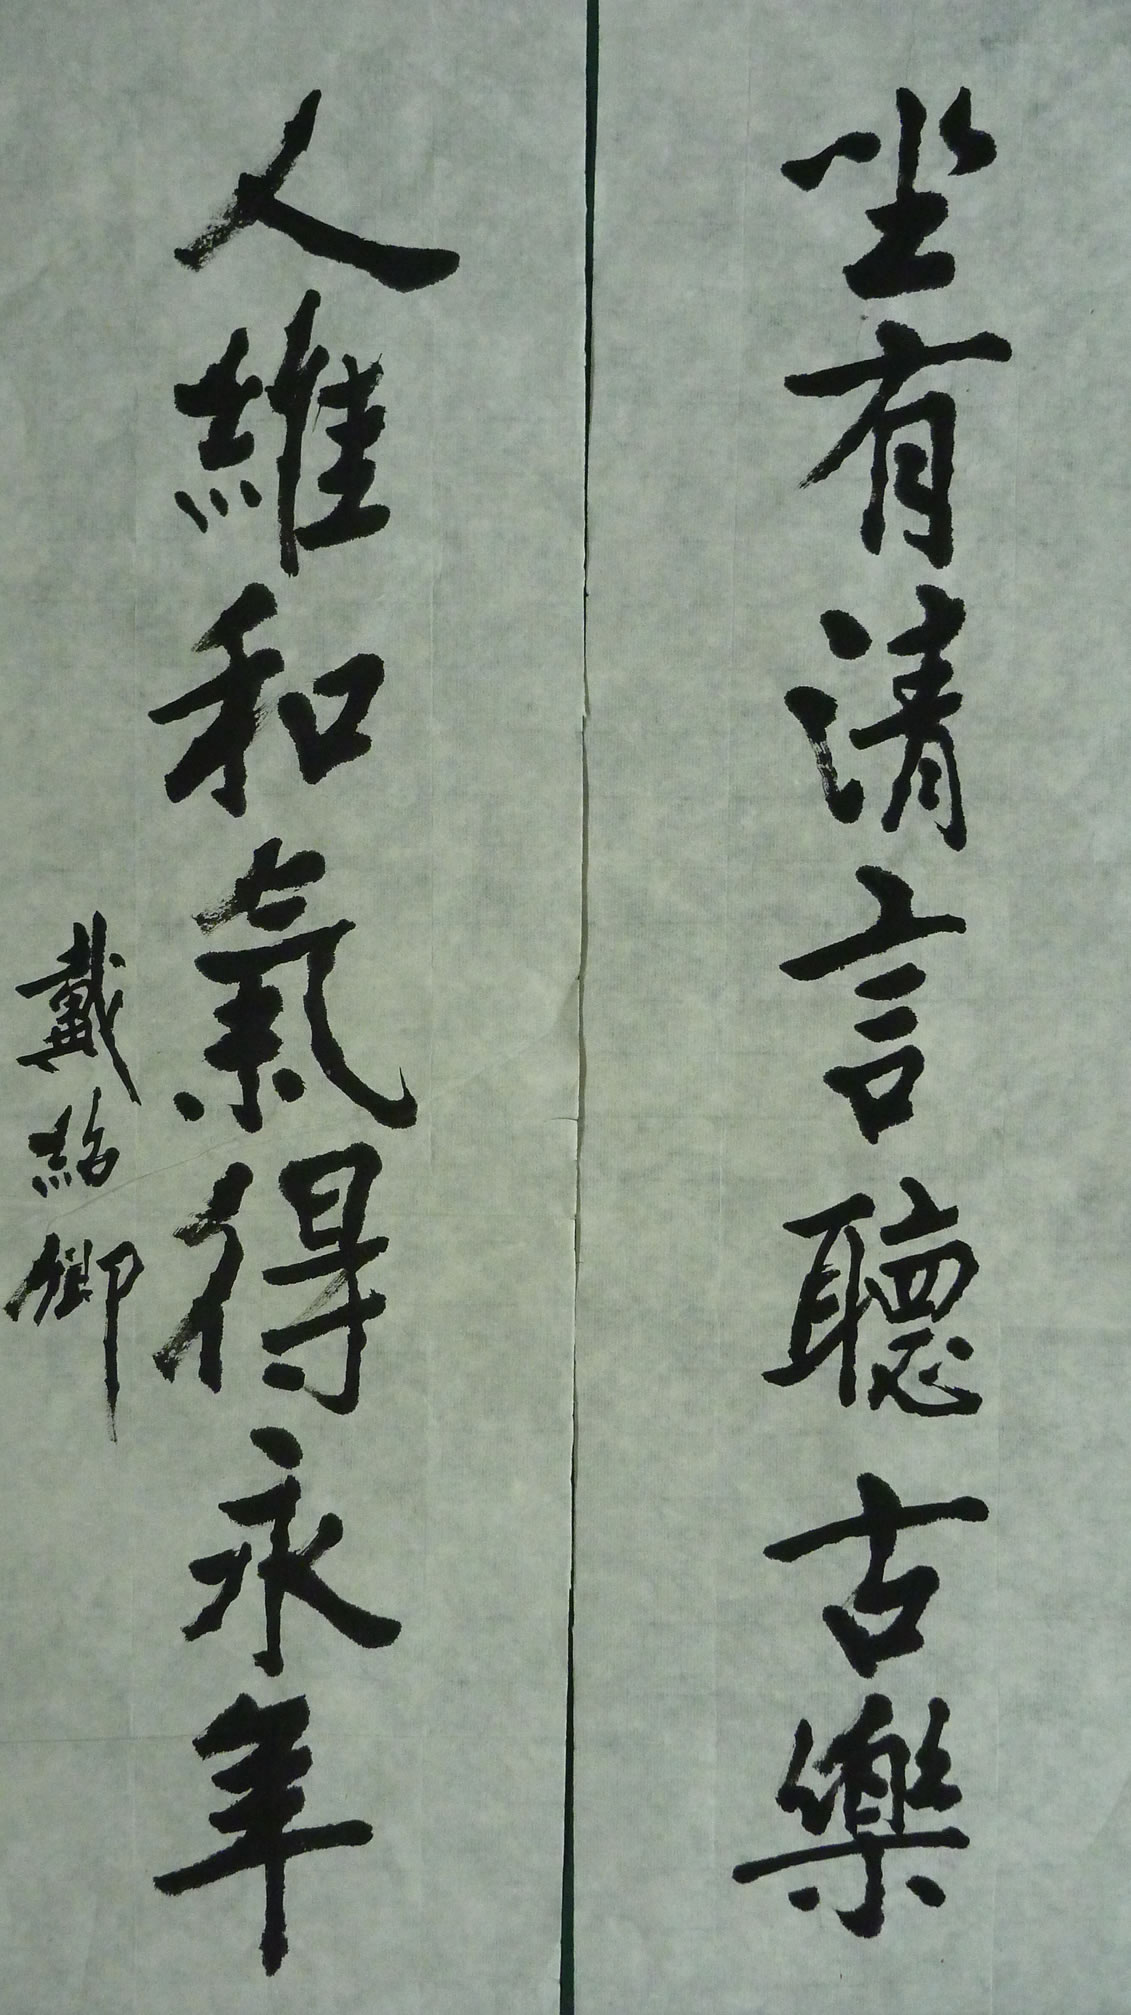 坐有清言聽古樂
人維和氣得永年
戴紹卿